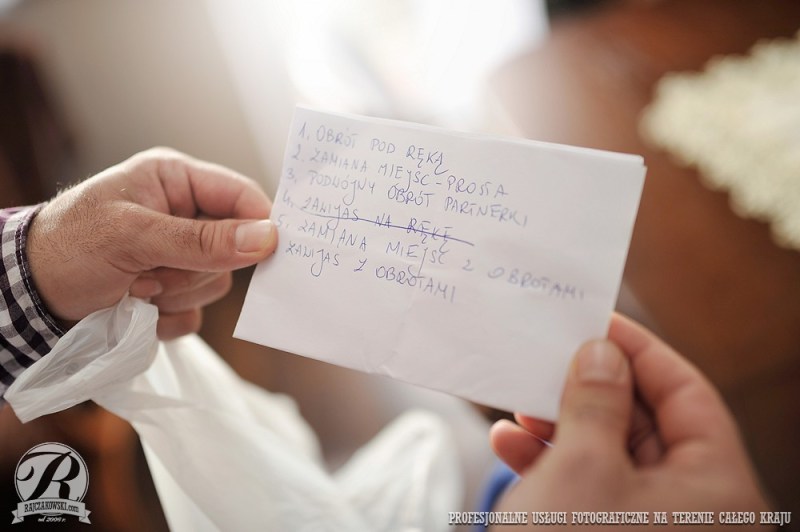 1. OBRÓT POD RĘKĄ
2. ZAMIANA MIEJSC - PROSTA
3. PODWÓJNY OBRÓT PARTNERKI
4. ZAWIJAS NA RĘKĘ
5. ZAMIANA MIEJSC Z OBROTAMI
ZAWIJAS Z OBROTAMI
R
RAJCZAKOWSKI.com
od 2005 r.
PROFESJONALNE USŁUGI FOTOGRAFICZNE NA TERENIE CAŁEGO KRAJU